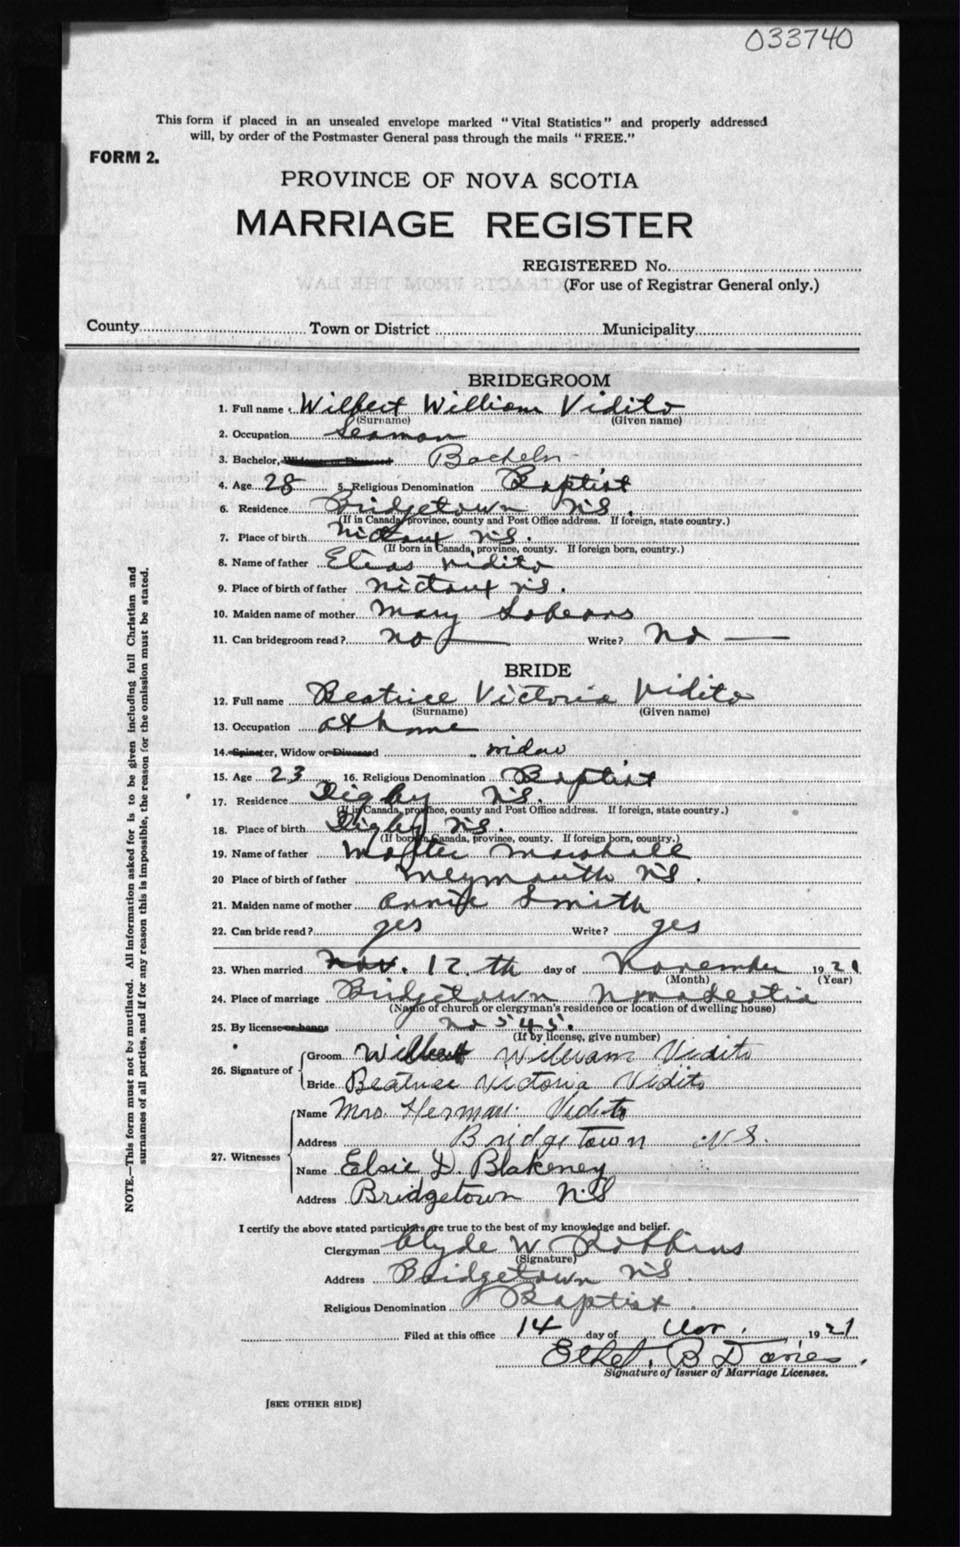 033740
This form if placed in an unsealed envelope marked "Vital Statistics" and properly addressed
will, by order of the Postmaster General pass through the mails "FREE."
FORM 2.
PROVINCE OF NOVA SCOTIA
MARRIAGE REGISTER
REGISTERED No.
(For use of Registrar General only.)
County Town or District Municipality
BRIDEGROOM
1. Full name Wilbert William Vidito
(Surname) (Given name)
2. Occupation Seaman
3. Bachelor, Widower or Divorced Bachelor
4. Age 28 5. Religious Denomination Baptist
6. Residence Bridgetown N.S.
(If in Canada, province, county and Post Office address. If foreign, state country.)
7. Place of birth Nictaux N.S.
(If born in Canada, province, county. If foreign born, country.)
8. Name of father Elias Vidito
9. Place of birth of father Nictaux N.S.
10. Maiden name of mother Mary
11. Can bridegroom read? no Write? No
BRIDE
12. Full name Beatrice Victoria Vidito
(Surname) (Given name)
13. Occupation at home
14. Spinster, Widow or Divorced widow
15. Age 23 16. Religious Denomination Baptist
17. Residence Digby N.S.
(If in Canada, province, county and Post Office address. If foreign, state country.)
18. Place of birth Digby N.S.
(If born in Canada, province, county. If foreign born, country.)
19. Name of father Marshall
20 Place of birth of father Weymouth N.S.
21. Maiden name of mother Annie Smith
22. Can bride read? yes Write? yes
23. When married Nov. 12.th day of November 1921
(Month) (Year)
24. Place of marriage Bridgetown Nova Scotia
(Name of church or clergyman's residence or location of dwelling house)
25. By license or banns No 545.
(If by license, give number)
26. Signature of Groom Wilbert William Vidito
Bride Beatrice Victoria Vidito
27. Witnesses Name Mrs. Herman Vidito
Address Bridgetown N.S.
Name Elsie D. Blakeney
Address Bridgetown N.S
I certify the above stated particulars are true to the best of my knowledge and belief.
Clergyman Clyde W Robbins
(Signature)
Address Bridgetown N.S.
Religious Denomination Baptist.
Filed at this office 14 day of Nov. 1921
Ethel. B Davies.
Signature of Issuer of Marriage Licenses.
[SEE OTHER SIDE]
NOTE.—This form must not be mutilated. All information asked for is to be given including full Christian and
surnames of all parties, and if for any reason this is impossible, the reason for the omission must be stated.